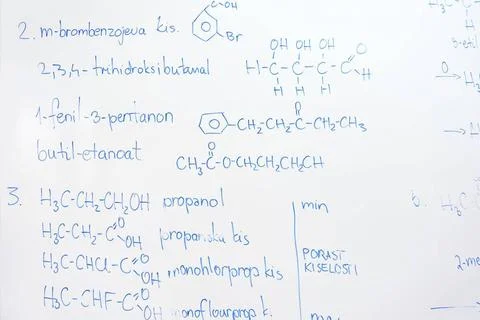 2. m-brombenzojeva kis.
OH
Br
2,3,4-trihidroksibutanal
OH OH OH O
H-C-C-C-C
H H H H
1-fenil-3-pentanon
O
-CH2CH2C-CH2CH3
butil-etanoat
O
CH3C-O-CH2CH2CH2CH
3. H3C-CH2-CH2OH propanol
H3C-CH2-C O OH propanska kis
H3C-CHCl-C O OH monohlorprop kis
H3C-CHF-C O OH monoflourprop k.
min
PORAST
KISELOSTI
6.